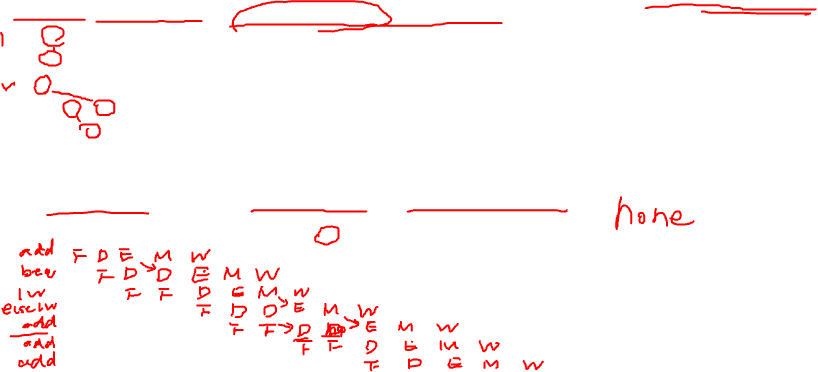 none
add F D E M W
beq F D D E M W
lw F F D E M W
else lw F D D E M W
add F F D D E M W
add F F D E M W
add F D E M W